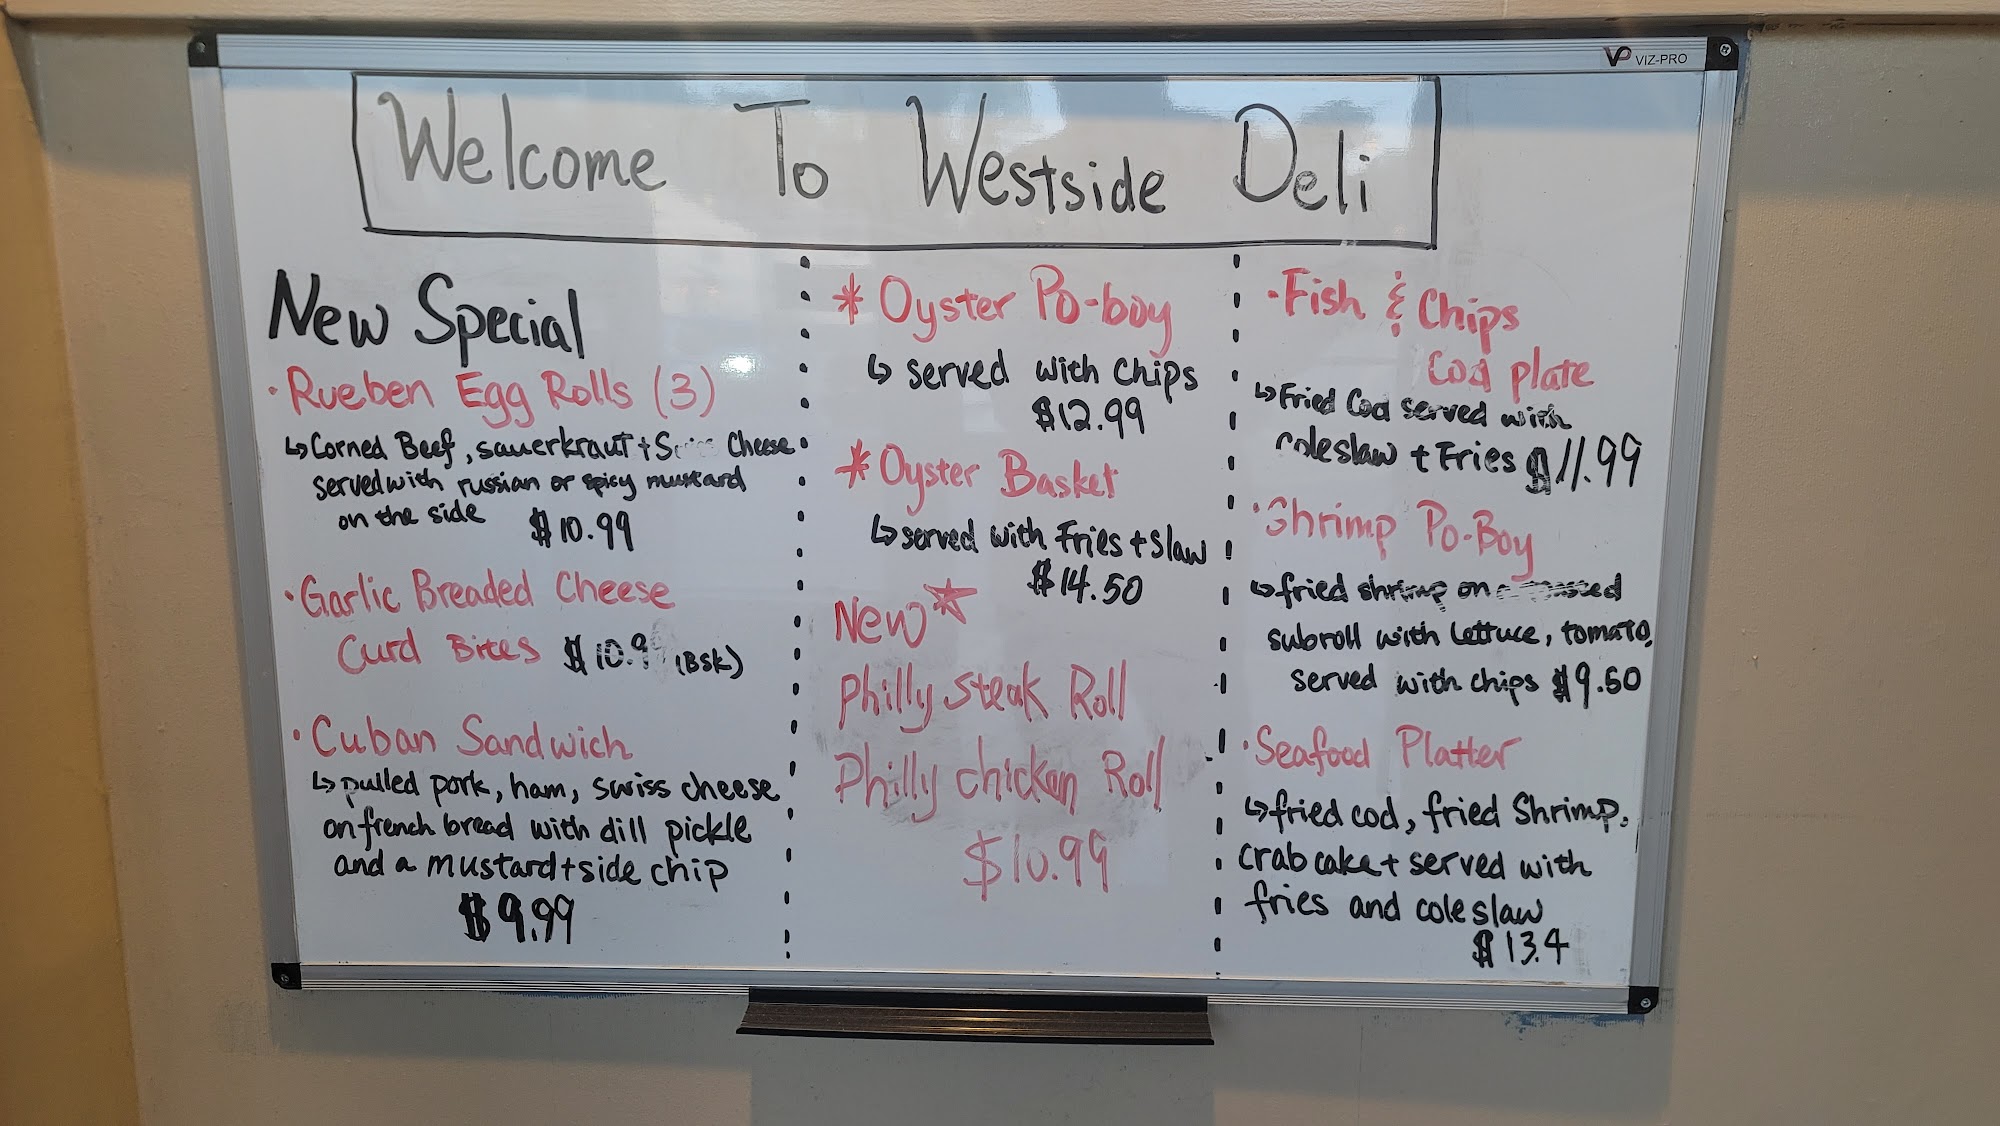 VIZ-PRO
Welcome To Westside Deli
New Special
· Rueben Egg Rolls (3)
↳ Corned Beef, sauerkraut + Cheese
served with russian or spicy mustard
on the side $10.99
· Garlic Breaded Cheese
Curd Bites $10.9 (Bsk)
· Cuban Sandwich
↳ pulled pork, ham, swiss cheese
on french bread with dill pickle
and a mustard + side chip
$9.99
* Oyster Po-boy
↳ served with Chips
$12.99
* Oyster Basket
↳ served with Fries + Slaw
$14.50
New
Philly Steak Roll
Philly Chicken Roll
$10.99
· Fish & Chips
Cod plate
↳ Fried Cod served with
coleslaw + Fries $11.99
· Shrimp Po-Boy
↳ fried shrimp on
subroll with lettuce, tomato,
served with chips $9.50
· Seafood Platter
↳ fried cod, fried Shrimp,
crab cake + served with
fries and coleslaw
$13.4